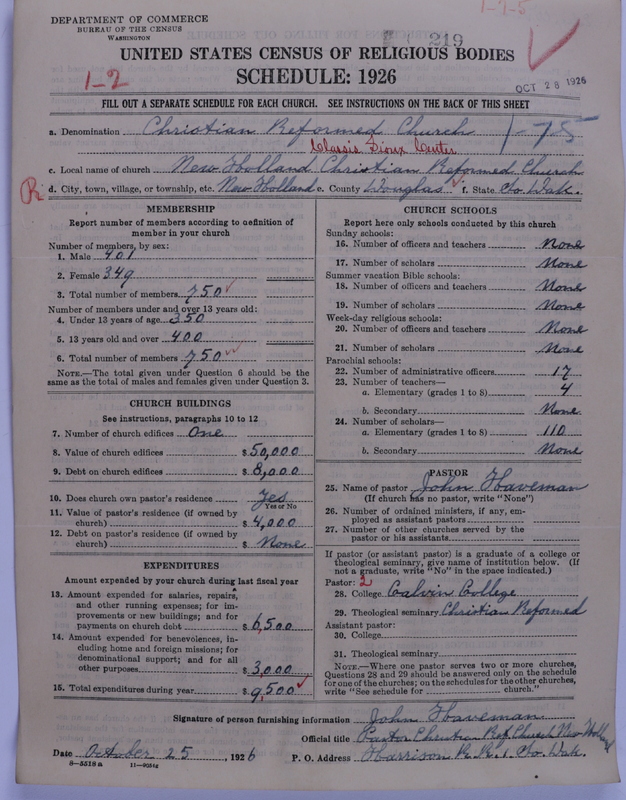 DEPARTMENT OF COMMERCE
BUREAU OF THE CENSUS
WASHINGTON
1-7-5
219
UNITED STATES CENSUS OF RELIGIOUS BODIES
SCHEDULE: 1926
1-2
OCT 28 1926
FILL OUT A SEPARATE SCHEDULE FOR EACH CHURCH. SEE INSTRUCTIONS ON THE BACK OF THIS SHEET
a. Denomination Christian Reformed Church 1-75
Classis Sioux Center
c. Local name of church New Holland Christian Reformed Church
R
d. City, town, village, or township, etc. New Holland e. County Douglas f. State So. Dak.
MEMBERSHIP
Report number of members according to definition of
member in your church
Number of members, by sex:
1. Male 401
2. Female 349
3. Total number of members 750
Number of members under and over 13 years old:
4. Under 13 years of age 350
5. 13 years old and over 400
6. Total number of members 750
NOTE.—The total given under Question 6 should be
same as the total of males and females given under Question 3.
CHURCH BUILDINGS
See instructions, paragraphs 10 to 12
7. Number of church edifices One
8. Value of church edifices $50,000
9. Debt on church edifices $8,000
10. Does church own pastor's residence Yes
Yes or No
11. Value of pastor's residence (if owned by
church) $4,000
12. Debt on pastor's residence (if owned by
church) $ None
EXPENDITURES
Amount expended by your church during last fiscal year
13. Amount expended for salaries, repairs,
and other running expenses; for im-
provements or new buildings; and for
payments on church debt $6,500
14. Amount expended for benevolences, in-
cluding home and foreign missions; for
denominational support; and for all
other purposes $3,000
15. Total expenditures during year $9,500
CHURCH SCHOOLS
Report here only schools conducted by this church
Sunday schools:
16. Number of officers and teachers None
17. Number of scholars None
Summer vacation Bible schools:
18. Number of officers and teachers None
19. Number of scholars None
Week-day religious schools:
20. Number of officers and teachers None
21. Number of scholars None
Parochial schools:
22. Number of administrative officers 17
23. Number of teachers—
a. Elementary (grades 1 to 8) 4
b. Secondary None
24. Number of scholars—
a. Elementary (grades 1 to 8) 110
b. Secondary None
PASTOR
25. Name of pastor John Haveman
(If church has no pastor, write "None")
26. Number of ordained ministers, if any, em-
ployed as assistant pastors
27. Number of other churches served by the
pastor or his assistants
If pastor (or assistant pastor) is a graduate of a college or
theological seminary, give name of institution below. (If
not a graduate, write "No" in the space indicated.)
Pastor: 2
28. College Calvin College
29. Theological seminary Christian Reformed
Assistant pastor:
30. College
31. Theological seminary
NOTE.—Where one pastor serves two or more churches,
Questions 28 and 29 should be answered only on the schedule
for one of the churches; on the schedules for the other churches,
write "See schedule for church."
Signature of person furnishing information John Haveman
Official title Pastor Christian Ref. Church New Holland
Date October 25, 1926 P. O. Address Harrison R.R.1. So. Dak.
8-5518a